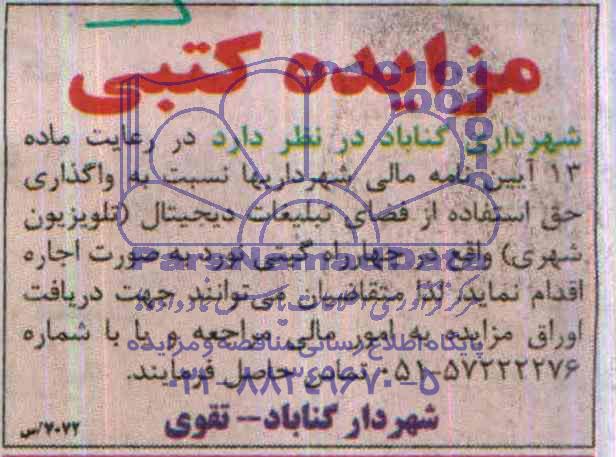 مزایده کتبی
شهرداری گناباد در نظر دارد در رعایت ماده
۱۳ آیین نامه مالی شهرداریها نسبت به واگذاری
حق استفاده از فضای تبلیغات دیجیتال (تلویزیون
شهری) واقع در چهارراه گیتی نورد به صورت اجاره
اقدام نماید. لذا متقاضیان می‌توانند جهت دریافت
اوراق مزایده به امور مالی مراجعه و یا با شماره
۰۵۱-۵۷۲۲۲۲۷۶ تماس حاصل فرمایند.
شهردار گناباد – تقوی
۷۰۷۲/س
ParsNamadData
پایگاه اطلاع رسانی مناقصه و مزایده
۰۲۱-۸۸۳۴۹۶۷۰-۵